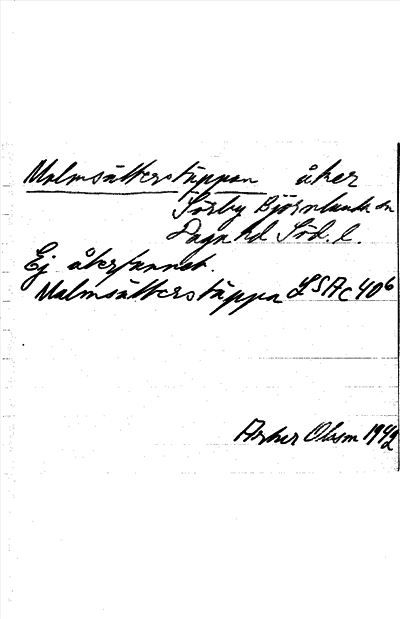 Malmsätterstäppan åker
Sorby Björnlunda sn
Daga hd Söd. l.
Ej återfunnet.
Malmsätterstäppa LSA C 406
Arthur Olsson 1942